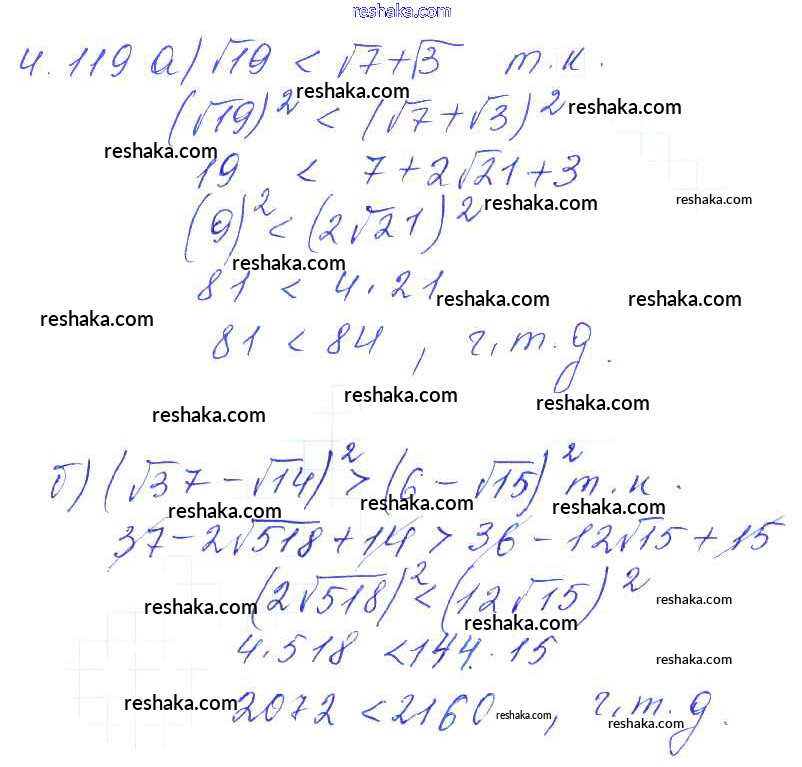 reshaka.com
4.119 а) √19 < √7+√3 т.к.
reshaka.com
(√19)² < (√7+√3)²
reshaka.com
reshaka.com
19 < 7+2√21+3
reshaka.com
reshaka.com
(9)² < (2√21)²
reshaka.com
81 < 4·21
reshaka.com
reshaka.com
reshaka.com
81 < 84, ч.т.д.
reshaka.com
reshaka.com
reshaka.com
б) (√37-√14)² > (6-√15)² т.к.
reshaka.com
reshaka.com
reshaka.com
37-2√518+14 > 36-12√15+15
(2√518)² < (12√15)²
reshaka.com
reshaka.com
reshaka.com
4·518 < 144·15
reshaka.com
reshaka.com
2072 < 2160, ч.т.д.
reshaka.com
reshaka.com